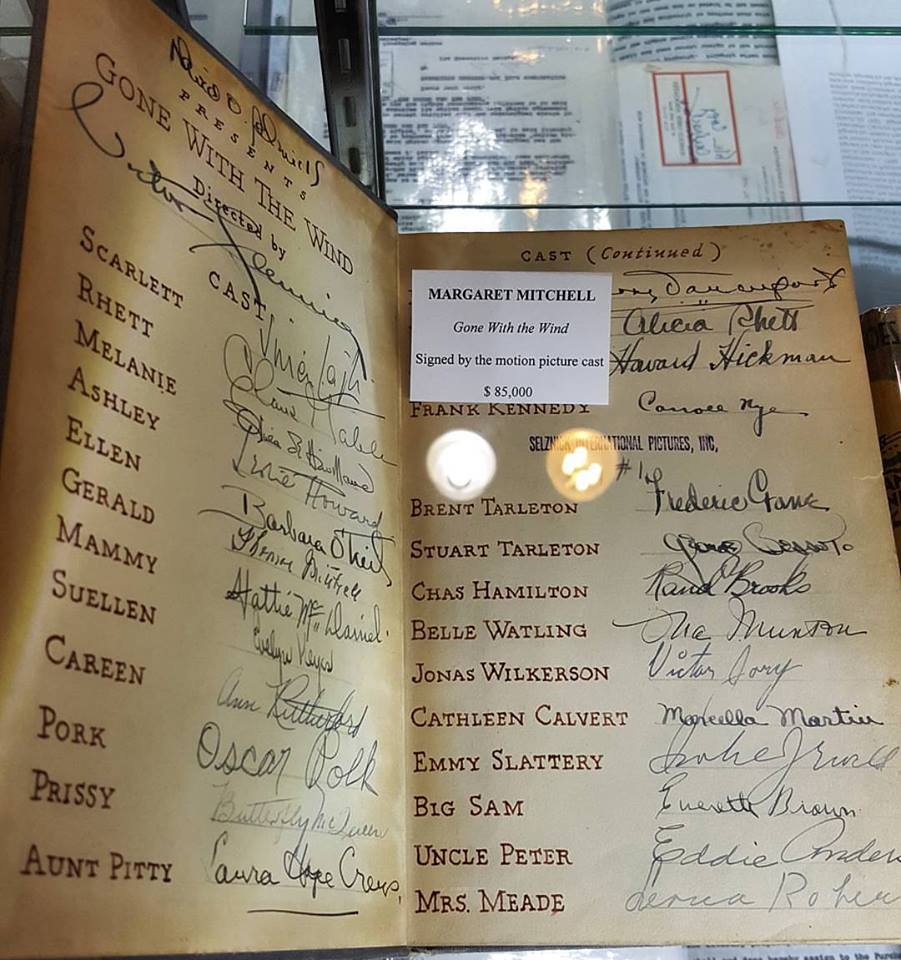 David O. Selznick
PRESENTS
GONE WITH THE WIND
Directed by
Victor Fleming
CAST
SCARLETT Vivien Leigh
RHETT Clark Gable
MELANIE Olivia de Havilland
ASHLEY Leslie Howard
ELLEN Barbara O'Neil
GERALD Thomas Mitchell
MAMMY Hattie McDaniel
SUELLEN Evelyn Keyes
CAREEN Ann Rutherford
PORK Oscar Polk
PRISSY Butterfly McQueen
AUNT PITTY Laura Hope Crews
CAST (Continued)
Davenport
Alicia Rhett
Howard Hickman
MARGARET MITCHELL
Gone With the Wind
Signed by the motion picture cast
$ 85,000
FRANK KENNEDY Carroll Nye
SELZNICK INTERNATIONAL PICTURES, INC,
#1
BRENT TARLETON Frederic Crane
STUART TARLETON George Bessolo
CHAS HAMILTON Rand Brooks
BELLE WATLING Ona Munson
JONAS WILKERSON Victor Jory
CATHLEEN CALVERT Marcella Martin
EMMY SLATTERY Isabel Jewell
BIG SAM Everett Brown
UNCLE PETER Eddie Ander
MRS. MEADE Leona Rober